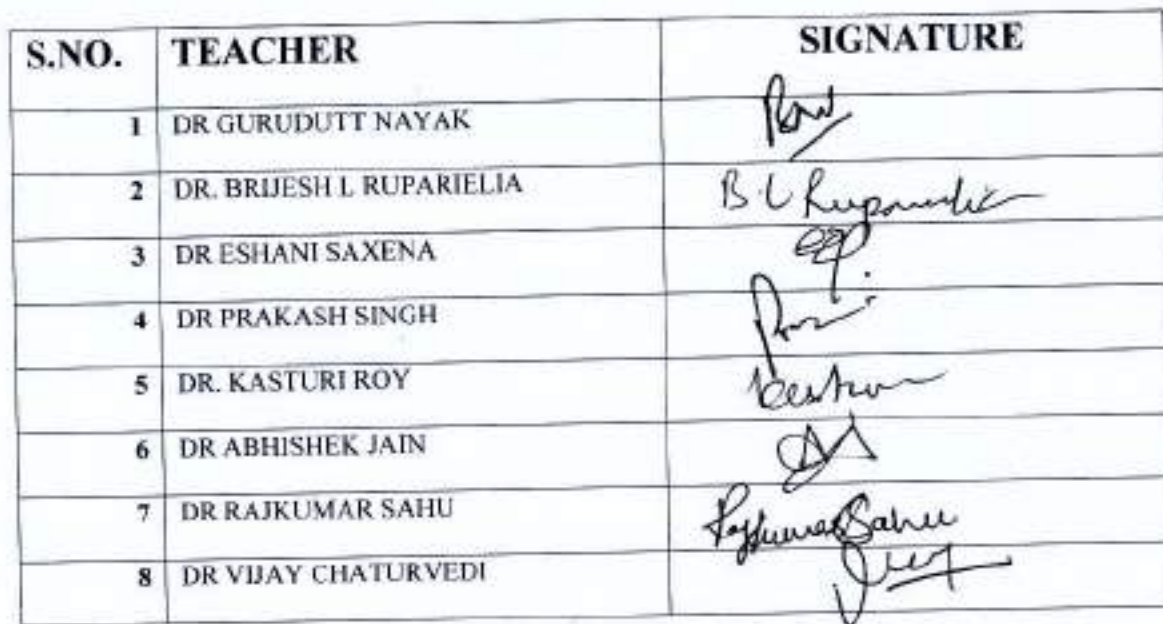 S.NO. TEACHER SIGNATURE
1 DR GURUDUTT NAYAK
2 DR. BRIJESH L RUPARIELIA B L Ruparelia
3 DR ESHANI SAXENA
4 DR PRAKASH SINGH
5 DR. KASTURI ROY
6 DR ABHISHEK JAIN
7 DR RAJKUMAR SAHU Rajkumar Sahu
8 DR VIJAY CHATURVEDI